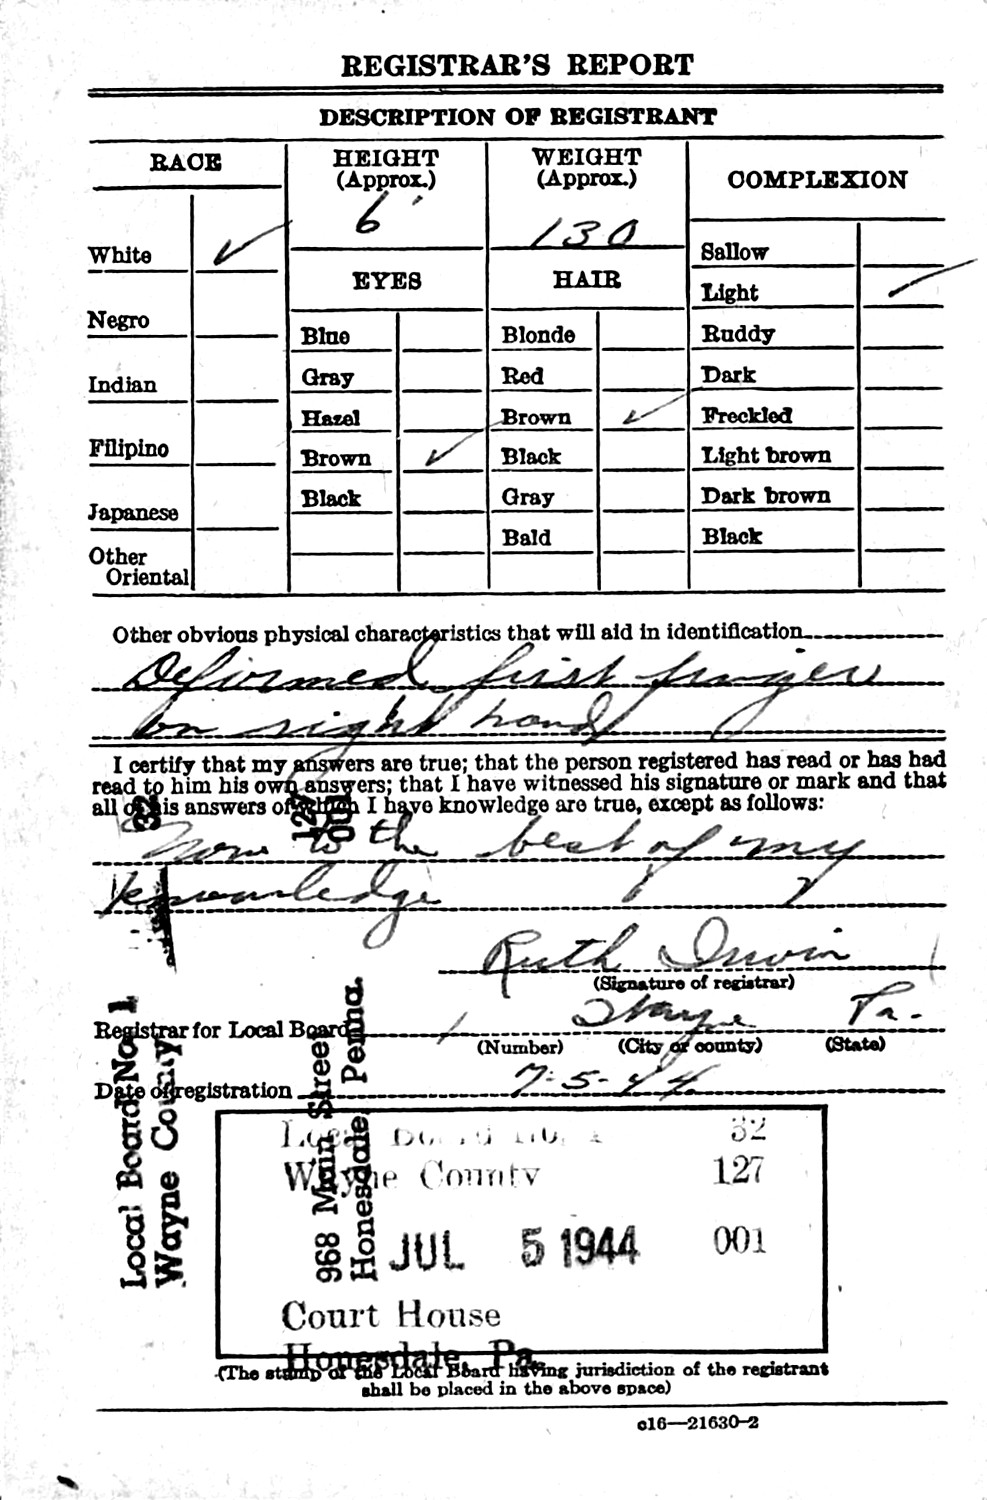 REGISTRAR'S REPORT
DESCRIPTION OF REGISTRANT
RACE
White ✓
Negro
Indian
Filipino
Japanese
Other
Oriental
HEIGHT
(Approx.)
6'
WEIGHT
(Approx.)
130
EYES
Blue
Gray
Hazel
Brown ✓
Black
HAIR
Blonde
Red
Brown ✓
Black
Gray
Bald
COMPLEXION
Sallow
Light ✓
Ruddy
Dark
Freckled
Light brown
Dark brown
Black
Other obvious physical characteristics that will aid in identification
Deformed first finger
on right hand
I certify that my answers are true; that the person registered has read or has had
read to him his own answers; that I have witnessed his signature or mark and that
all of his answers of which I have knowledge are true, except as follows:
None to the best of my
knowledge
Ruth Irwin
(Signature of registrar)
Registrar for Local Board 1 Wayne Pa.
(Number) (City or county) (State)
Date of registration 7-5-44
Local Board No. 1 32
Wayne County 127
JUL 5 1944 001
Court House
Honesdale, Pa.
(The stamp of the Local Board having jurisdiction of the registrant
shall be placed in the above space)
c16—21630-2
Local Board No. 1 32
Wayne County
968 Main Street 127
Honesdale, Penna. 001